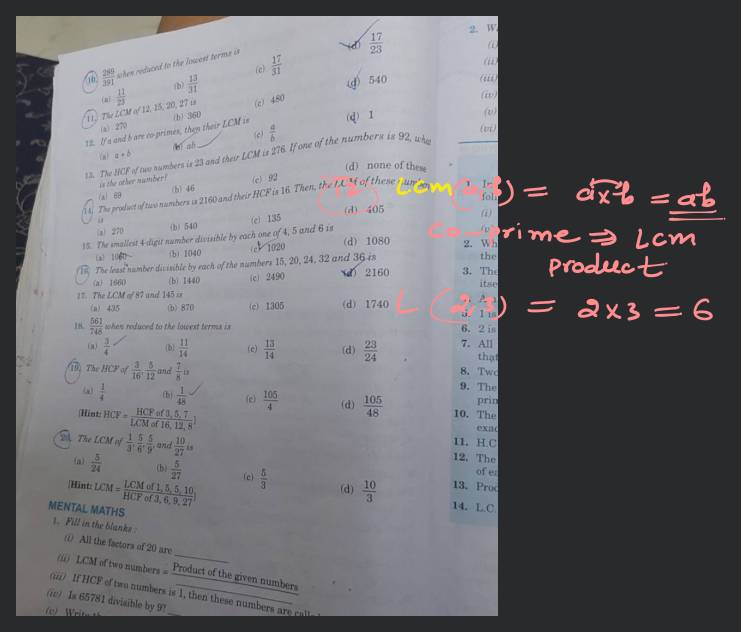 10. 289/391 when reduced to the lowest terms is
(a) 11/23 (b) 13/31 (c) 17/31 (d) 17/23
11. The LCM of 12, 15, 20, 27 is
(a) 270 (b) 360 (c) 480 (d) 540
12. If a and b are co-primes, then their LCM is
(a) a + b (b) ab (c) a/b (d) 1
13. The HCF of two numbers is 23 and their LCM is 276. If one of the numbers is 92, what
is the other number?
(a) 69 (b) 46 (c) 92 (d) none of these
14. The product of two numbers is 2160 and their HCF is 16. Then, the LCM of these numbers
is
(a) 270 (b) 540 (c) 135 (d) 405
15. The smallest 4-digit number divisible by each one of 4, 5 and 6 is
(b) 1040 (c) 1020 (d) 1080
16. The least number divisible by each of the numbers 15, 20, 24, 32 and 36 is
(a) 1660 (b) 1440 (c) 2490 (d) 2160
17. The LCM of 87 and 145 is
(a) 435 (b) 870 (c) 1305 (d) 1740
18. 561/748 when reduced to the lowest terms is
(a) 3/4 (b) 11/14 (c) 13/14 (d) 23/24
19. The HCF of 3/16, 5/12 and 7/8 is
(a) 1/4 (b) 1/48 (c) 105/4 (d) 105/48
[Hint: HCF = HCF of 3, 5, 7 / LCM of 16, 12, 8]
20. The LCM of 1/3, 5/6, 5/9, and 10/27 is
(a) 5/24 (b) 5/27 (c) 5/3 (d) 10/3
[Hint: LCM = LCM of 1, 5, 5, 10 / HCF of 3, 6, 9, 27]
MENTAL MATHS
1. Fill in the blanks :
(i) All the factors of 20 are
(ii) LCM of two numbers = Product of the given numbers
(iii) If HCF of two numbers is 1, then these numbers are
(iv) Is 65781 divisible by 9?
(v)
2. W
(i)
(ii)
(iii)
(iv)
(v)
(vi)
(i)
2. Wh
the
3. The
itse
6. 2 is
7. All
that
8. Two
9. The
prin
10. The
exac
11. H.C
12. The
13. Prod
14. L.C.
12 LCM (a,b) = a×b = ab
Co-prime ⇒ LCM
product
L (2,3) = 2×3 = 6